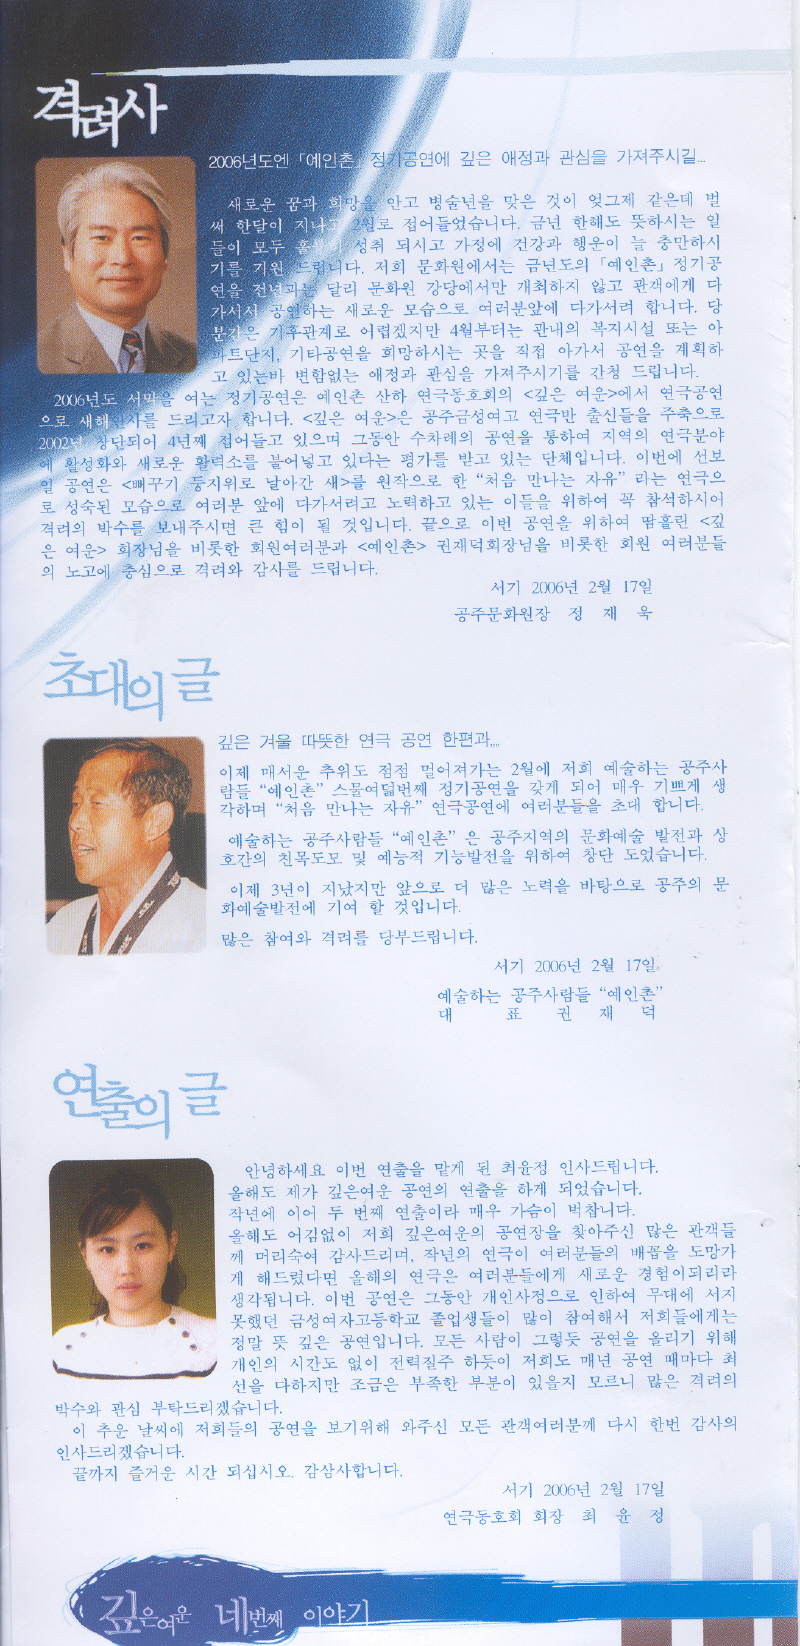 격려사
2006년도엔 「예인촌」 정기공연에 깊은 애정과 관심을 가져주시길...
새로운 꿈과 희망을 안고 병술년을 맞은 것이 엊그제 같은데 벌
써 한달이 지나고 2월로 접어들었습니다. 금년 한해도 뜻하시는 일
들이 모두 성취 되시고 가정에 건강과 행운이 늘 충만하시
기를 기원 드립니다. 저희 문화원에서는 금년도의 「예인촌」 정기공
연을 전년과는 달리 문화원 강당에서만 개최하지 않고 관객에게 다
가서서 공연하는 새로운 모습으로 여러분앞에 다가서려 합니다. 당
분간은 기후관계로 어렵겠지만 4월부터는 관내의 복지시설 또는 아
파트단지, 기타공연을 희망하시는 곳을 직접 아가서 공연을 계획하
고 있는바 변함없는 애정과 관심을 가져주시기를 간청 드립니다.
2006년도 서막을 여는 정기공연은 예인촌 산하 연극동호회의 <깊은 여운>에서 연극공연
으로 새해인사를 드리고자 합니다. <깊은 여운>은 공주금성여고 연극반 출신들을 주축으로
2002년 창단되어 4년째 접어들고 있으며 그동안 수차례의 공연을 통하여 지역의 연극분야
에 활성화와 새로운 활력소를 불어넣고 있다는 평가를 받고 있는 단체입니다. 이번에 선보
일 공연은 <뻐꾸기 둥지위로 날아간 새>를 원작으로 한 “처음 만나는 자유” 라는 연극으
로 성숙된 모습으로 여러분 앞에 다가서려고 노력하고 있는 이들을 위하여 꼭 참석하시어
격려의 박수를 보내주시면 큰 힘이 될 것입니다. 끝으로 이번 공연을 위하여 땀흘린 <깊
은 여운> 회장님을 비롯한 회원여러분과 <예인촌> 권재덕회장님을 비롯한 회원 여러분들
의 노고에 충심으로 격려와 감사를 드립니다.
서기 2006년 2월 17일
공주문화원장 정 재 욱
초대의 글
깊은 겨울 따뜻한 연극 공연 한편과,,,,
이제 매서운 추위도 점점 멀어져가는 2월에 저희 예술하는 공주사
람들 “예인촌” 스물여덟번째 정기공연을 갖게 되어 매우 기쁘게 생
각하며 “처음 만나는 자유” 연극공연에 여러분들을 초대 합니다.
예술하는 공주사람들 “예인촌” 은 공주지역의 문화예술 발전과 상
호간의 친목도모 및 예능적 기능발전을 위하여 창단 도었습니다.
이제 3년이 지났지만 앞으로 더 많은 노력을 바탕으로 공주의 문
화예술발전에 기여 할 것입니다.
많은 참여와 격려를 당부드립니다.
서기 2006년 2월 17일.
예술하는 공주사람들 “예인촌”
대 표 권 재 덕
연출의 글
안녕하세요 이번 연출을 맡게 된 최윤정 인사드립니다.
올해도 제가 깊은여운 공연의 연출을 하게 되었습니다.
작년에 이어 두 번째 연출이라 매우 가슴이 벅찹니다.
올해도 어김없이 저희 깊은여운의 공연장을 찾아주신 많은 관객들
께 머리숙여 감사드리며, 작년의 연극이 여러분들의 배꼽을 도망가
게 해드렸다면 올해의 연극은 여러분들에게 새로운 경험이되리라
생각됩니다. 이번 공연은 그동안 개인사정으로 인하여 무대에 서지
못했던 금성여자고등학교 졸업생들이 많이 참여해서 저희들에게는
정말 뜻 깊은 공연입니다. 모든 사람이 그렇듯 공연을 올리기 위해
개인의 시간도 없이 전력질주 하듯이 저희도 매년 공연 때마다 최
선을 다하지만 조금은 부족한 부분이 있을지 모르니 많은 격려의
박수와 관심 부탁드리겠습니다.
이 추운 날씨에 저희들의 공연을 보기위해 와주신 모든 관객여러분께 다시 한번 감사의
인사드리겠습니다.
끝까지 즐거운 시간 되십시오. 감삼사합니다.
서기 2006년 2월 17일
연극동호회 회장 최 윤 정
깊은여운 네번째 이야기